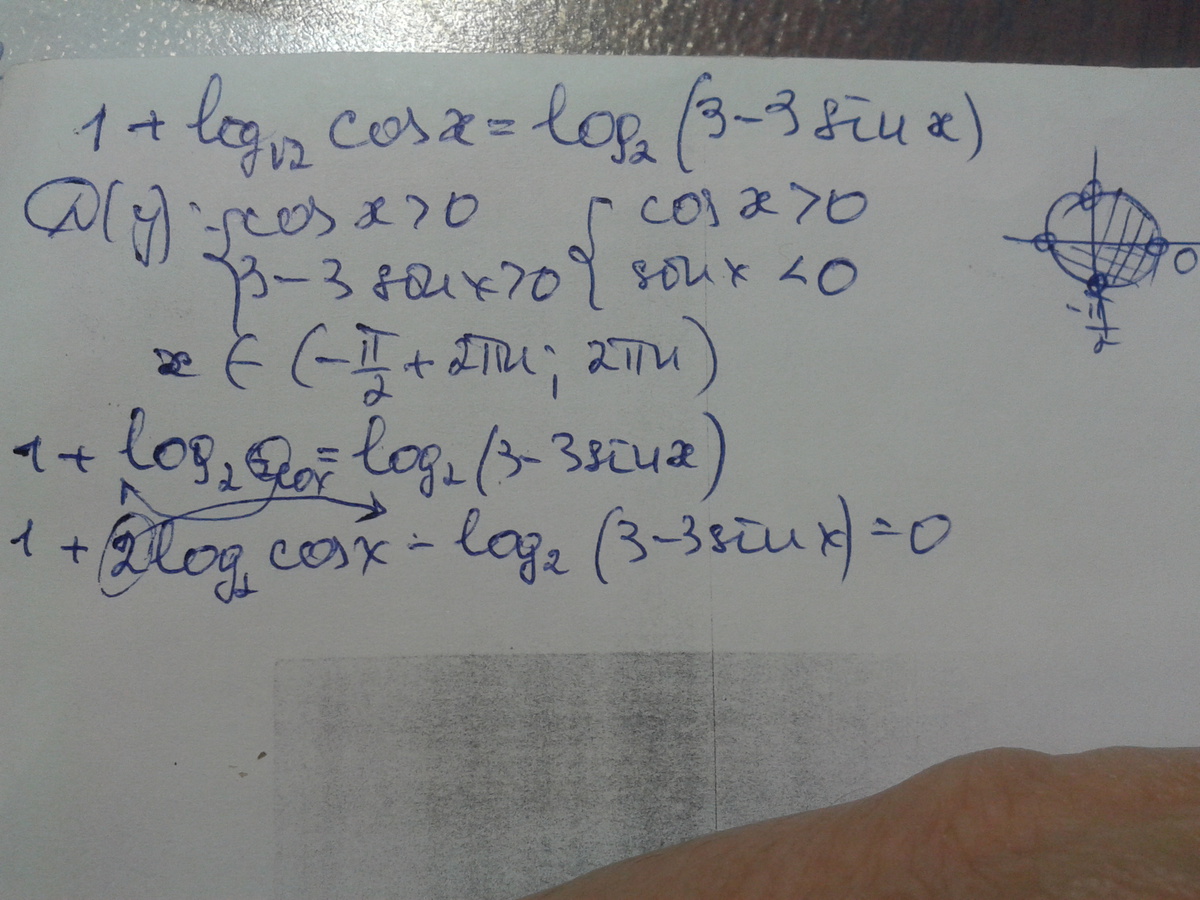 1 + log_√2 cos x = log_2 (3 - 3 sin x)
D(y): { cos x > 0 { cos x > 0
{ 3 - 3 sin x > 0 { sin x < 0
0
-π/2
x ∈ (-π/2 + 2πn; 2πn)
1 + log_2 cos x = log_2 (3 - 3 sin x)
1 + 2 log_2 cos x - log_2 (3 - 3 sin x) = 0